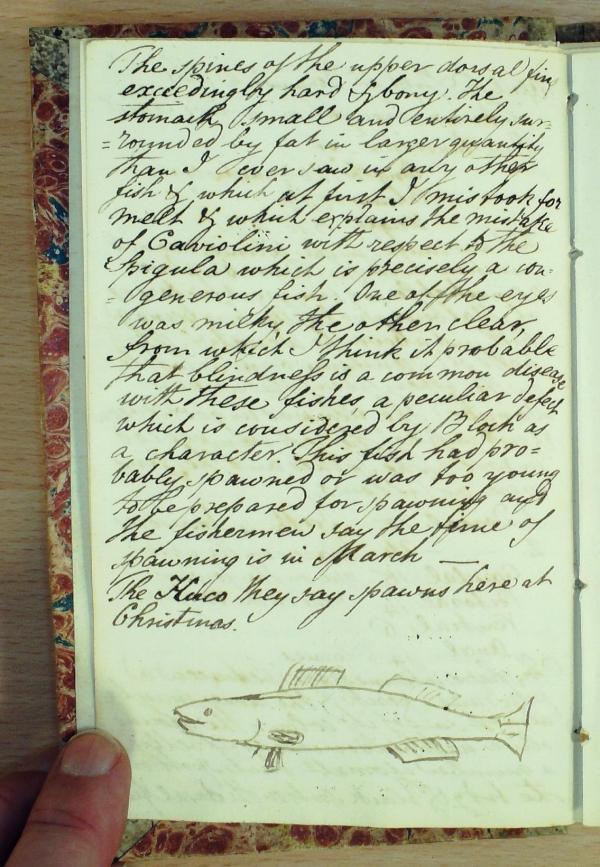 The spines of the upper dorsal fin
exceedingly hard & bony. The
stomach small and entirely sur=
=rounded by fat in larger quantity
than I ever saw in any other
fish & which at first I mistook for
melt & which explains the mistake
of Caviolini with respect to the
Spigula which is precisely a con=
=generous fish. One of the eyes
was milky, the other clear,
from which I think it probable
that blindness is a common disease
with these fishes, a peculiar defect
which is considered by Bloch as
a character. This fish had pro=
bably spawned or was too young
to be prepared for spawning and
the fishermen say the time of
spawning is in March —
The Huco they say spawns here at
Christmas.